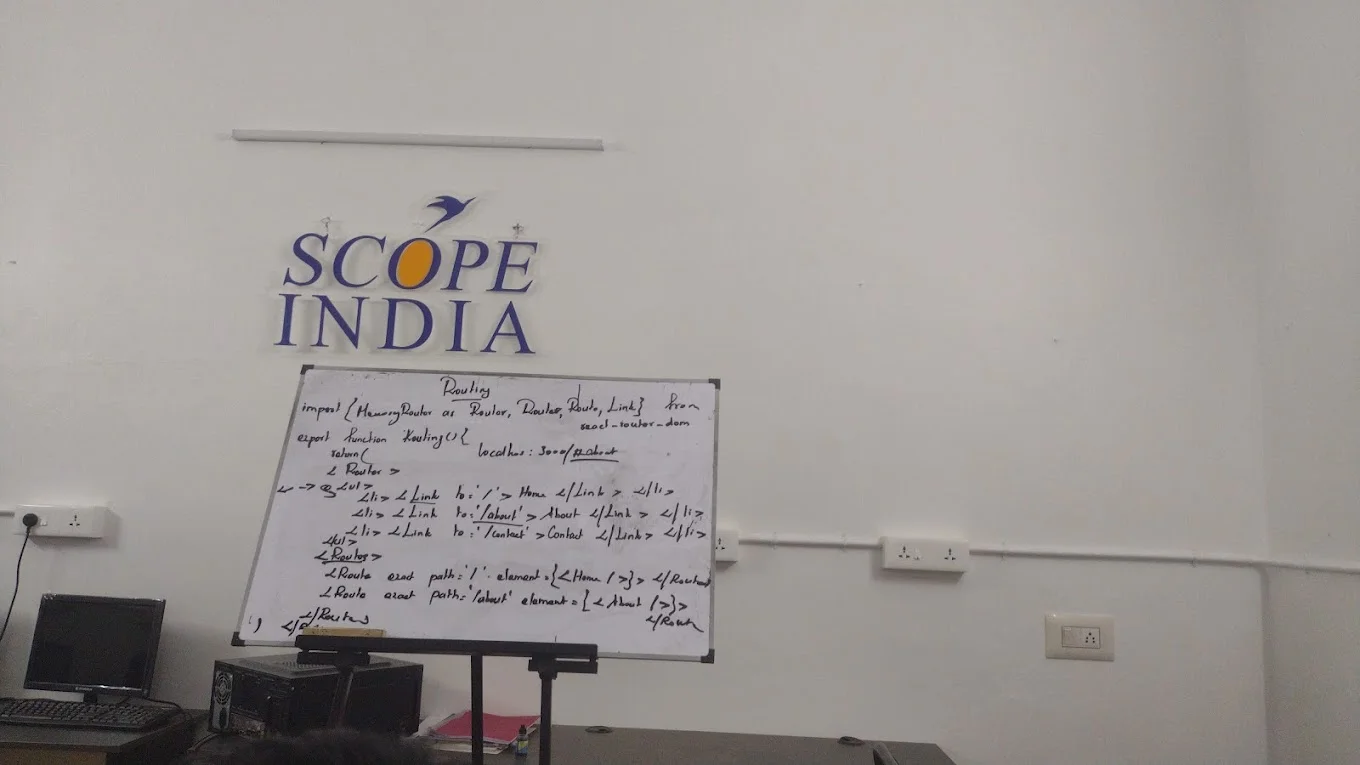 SCOPE
INDIA
Routing
import {MemoryRouter as Router, Routes, Route, Link} from
react-router-dom
export function Routing(){
return( localhos: 3000/#about
<Router>
<ul>
<li> <Link to='/'> Home </Link> </li>
<li> <Link to='/about'> About </Link> </li>
<li> <Link to='/contact'> Contact </Link> </li>
</ul>
<Routes>
<Route exact path='/' element={<Home />}> </Route>
<Route exact path='/about' element={<About />}>
</Route>
</Routes>